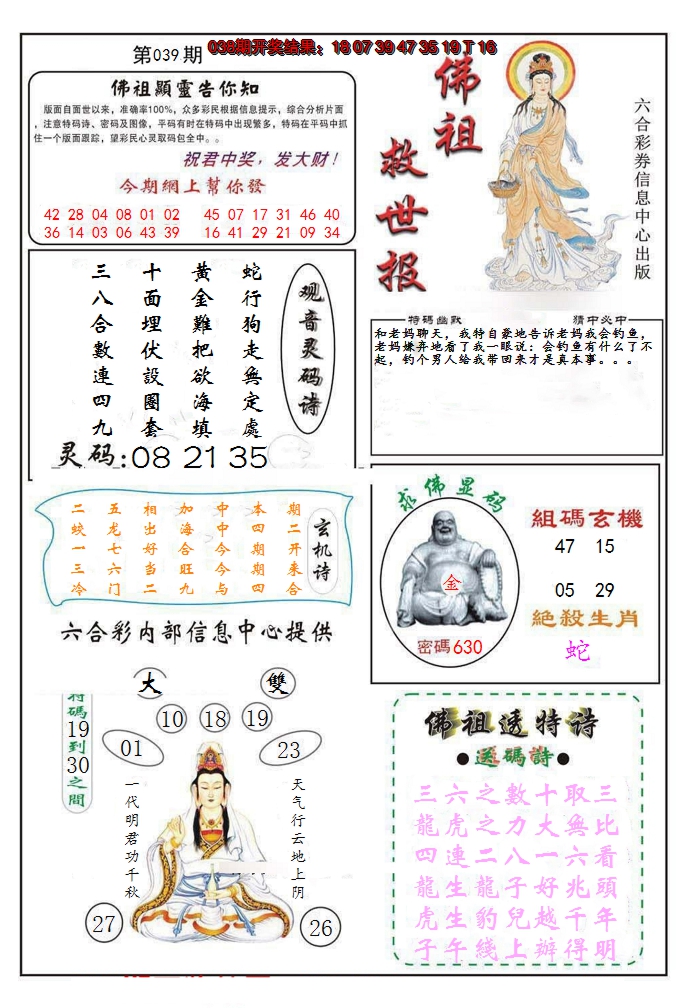 第039期
038期开奖结果：18 07 39 47 35 19 T 16
佛祖顯靈告你知
版面自面世以来，准确率100%，众多彩民根据信息提示，综合分析片面
，注意特码诗、密码及图像，平码有时在特码中出现繁多，特码在平码中抓
住一个版面跟踪，望彩民心灵取码包全中。。
祝君中奖，发大财！
今期網上幫你發
42 28 04 08 01 02 45 07 17 31 46 40
36 14 03 06 43 39 16 41 29 21 09 34
佛祖
救世报
六合彩券信息中心出版
观音灵码诗
蛇行狗走無定處
黃金難把欲海填
十面埋伏設圈套
三八合數連四九
灵码:08 21 35
特码幽默
猜中必中
和老妈聊天，我特自豪地告诉老妈我会钓鱼，
老妈嫌弃地看了我一眼说：会钓鱼有什么了不
起，钓个男人给我带回来才是真本事。。。
玄机诗
期二开来合
本四期期四
中中今今与
加海合旺九
相出好当二
五龙七六门
二蛟一三冷
六合彩内部信息中心提供
求佛显码
金
密碼630
組碼玄機
47 15
05 29
絶殺生肖
蛇
大
雙
特碼19到30之間
10 18 19
01
23
一代明君功千秋
天气行云地上阴
27
26
佛祖透特诗
●送碼詩●
三六之數十取三
龍虎之力大無比
四連二八一六看
龍生龍子好兆頭
虎生豹兒越千年
子午綫上辦得明